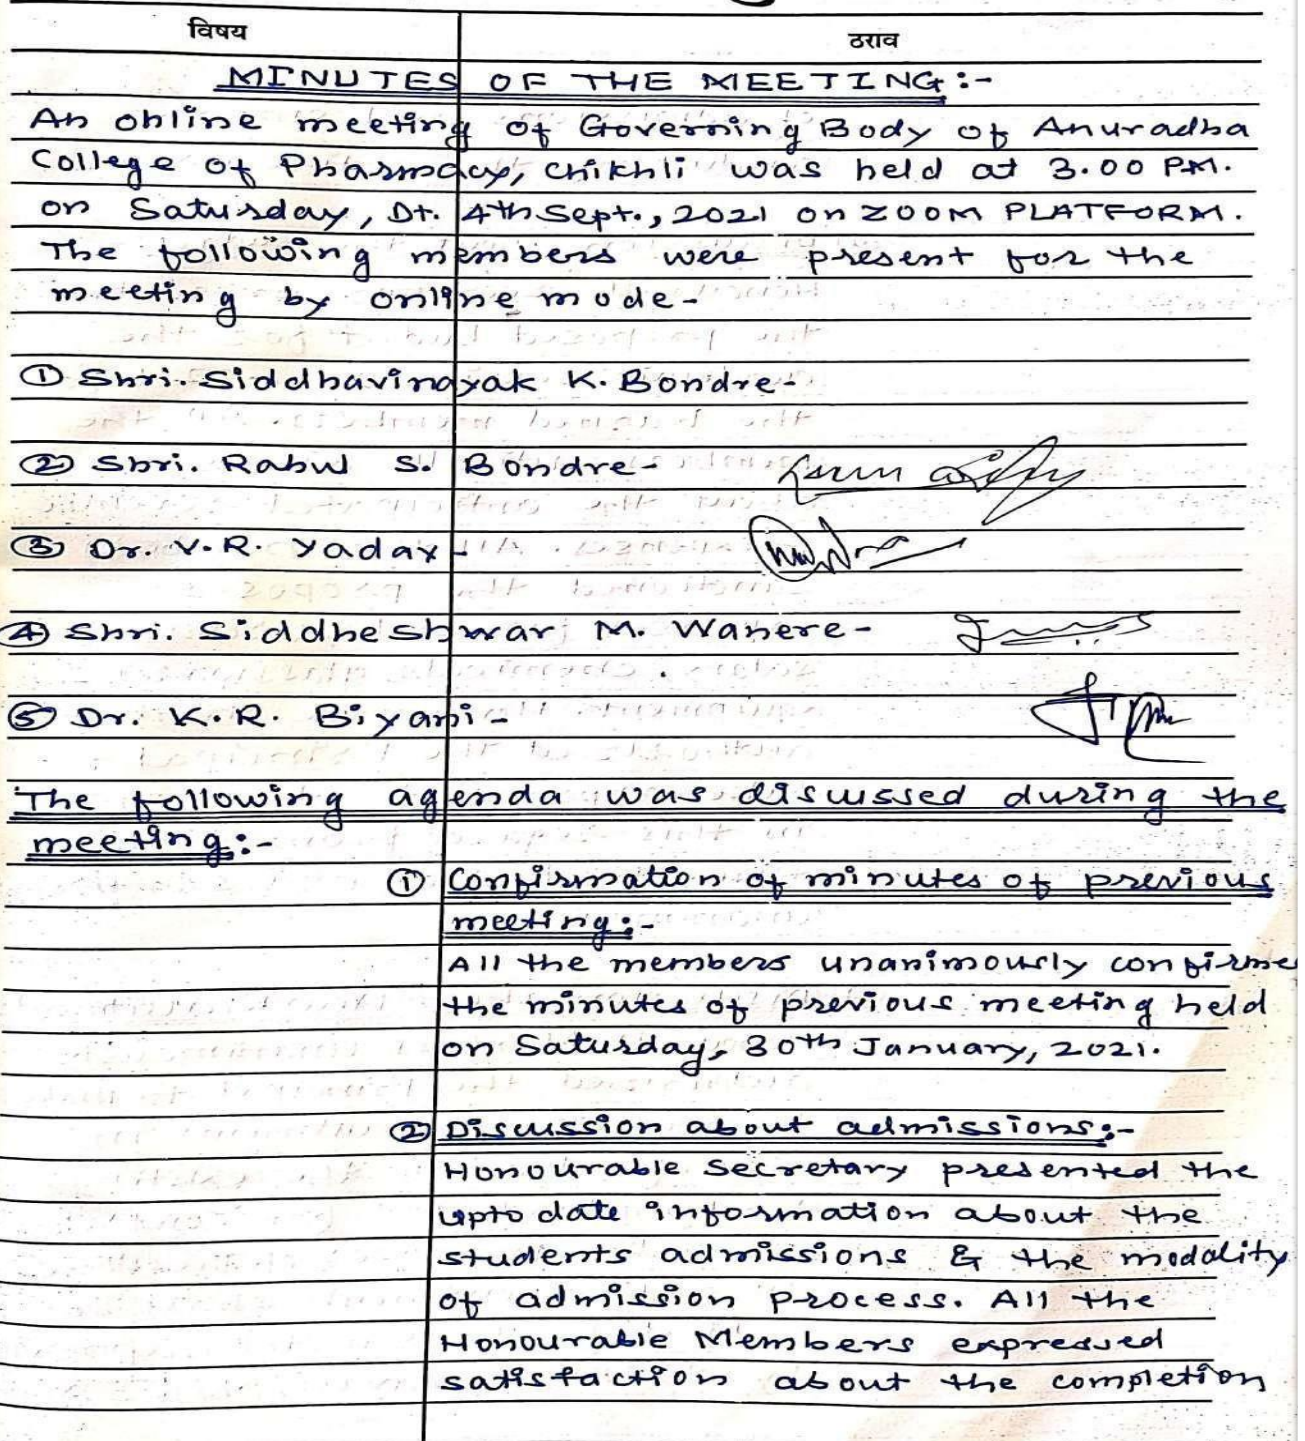 विषय ठराव
MINUTES OF THE MEETING:-
An online meeting of Governing Body of Anuradha
College of Pharmacy, Chikhli was held at 3.00 P.M.
on Saturday, Dt. 4th Sept., 2021 on ZOOM PLATFORM.
The following members were present for the
meeting by online mode-
① Shri. Siddhavinayak K. Bondre-
② Shri. Rahul S. Bondre-
③ Dr. V. R. Yadav-
④ Shri. Siddheshwar M. Wanere-
⑤ Dr. K. R. Biyani-
The following agenda was discussed during the
meeting:-
① Confirmation of minutes of previous
meeting:-
All the members unanimously confirme
the minutes of previous meeting held
on Saturday, 30th January, 2021.
② Discussion about admissions:-
Honourable Secretary presented the
upto date information about the
students admissions & the modality
of admission process. All the
Honourable Members expressed
satisfaction about the completion